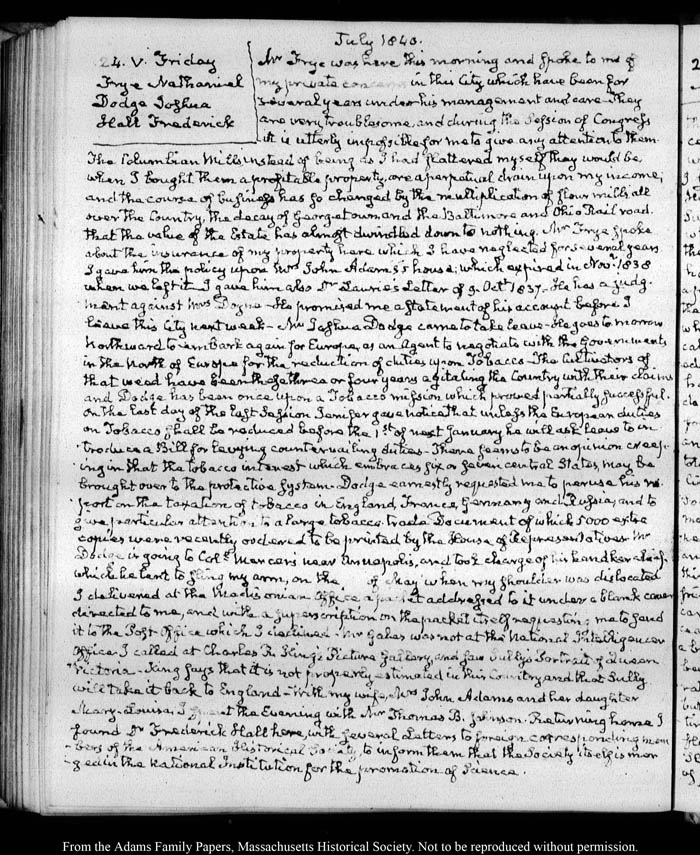 July 1840.
24. V. Friday
Frye Nathaniel
Dodge Joshua
Hall Frederick
Mr Frye was here this morning and spoke to me of
my private concerns in this City, which have been for
several years under his management and care. They
are very troublesome, and during the Session of Congress
it is utterly impossible for me to give any attention to them.
The Columbian Mills instead of being as I had flattered myself they would be,
when I bought them a profitable property, are a perpetual drain upon my income,
and the course of business has so changed by the multiplication of flour mills all
over the Country, the decay of Georgetown and the Baltimore and Ohio Rail road.
that the value of the Estate has almost dwindled down to nothing. Mr Frye spoke
about the insurance of my property here which I have neglected for several years
I gave him the policy upon Mrs John Adams's house; which expired in Novr 1838
when we left it. I gave him also Dr Laurie's Letter of 9. Octr 1837. He has a judg-
ment against Mrs Doyne. He promised me a statement of his account before I
leave this City next week. Mr Joshua Dodge came to take leave. He goes to morrow
Northward to embark again for Europe, as an Agent to negotiate with the Governments
in the North of Europe for the reduction of duties upon Tobacco. The Cultivators of
that weed have been these three or four years agitating the Country with their claims
and Dodge has been once upon a Tobacco mission which proved partially successful.
On the last day of the last Session Jenifer gave notice that unless the European duties
on Tobacco shall be reduced before the 1st of next January he will ask leave to in-
troduce a Bill for levying countervailing duties. There seems to be an opinion creep-
ing in that the tobacco interest which embraces six or seven central States, may be
brought over to the protective System. Dodge earnestly requested me to peruse his re-
port on the taxation of tobacco in England, France, Germany and Russia, and to
give particular attention to a large tobacco trade Document of which 5000 extra
copies were recently ordered to be printed by the House of Representatives. Mr
Dodge is going to Coll Mercer's near Annapolis, and took charge of his handkerchief
which he lent to sling my arm, on the of May when my shoulder was dislocated
I delivered at the Madisonian Office a packet addressed to it under a blank cover
directed to me, and with a superscription on the packet itself requesting me to send
it to the Post Office which I declined. Mr Gales was not at the National Intelligencer
Office. I called at Charles B. King's Picture Gallery, and saw Sully's Portrait of Queen
Victoria. King says that it is not properly estimated in this Country and that Sully
will take it back to England. With my wife, Mrs John Adams and her daughter
Mary-Louisa, I spent the Evening with Mr Thomas B. Johnson. Returning home I
found Dr Frederick Hall here, with several Letters to foreign corresponding mem
-bers of the American Historical Society, to inform them that the Society itself is mer
-ged in the National Institution for the promotion of Science.
From the Adams Family Papers, Massachusetts Historical Society. Not to be reproduced without permission.